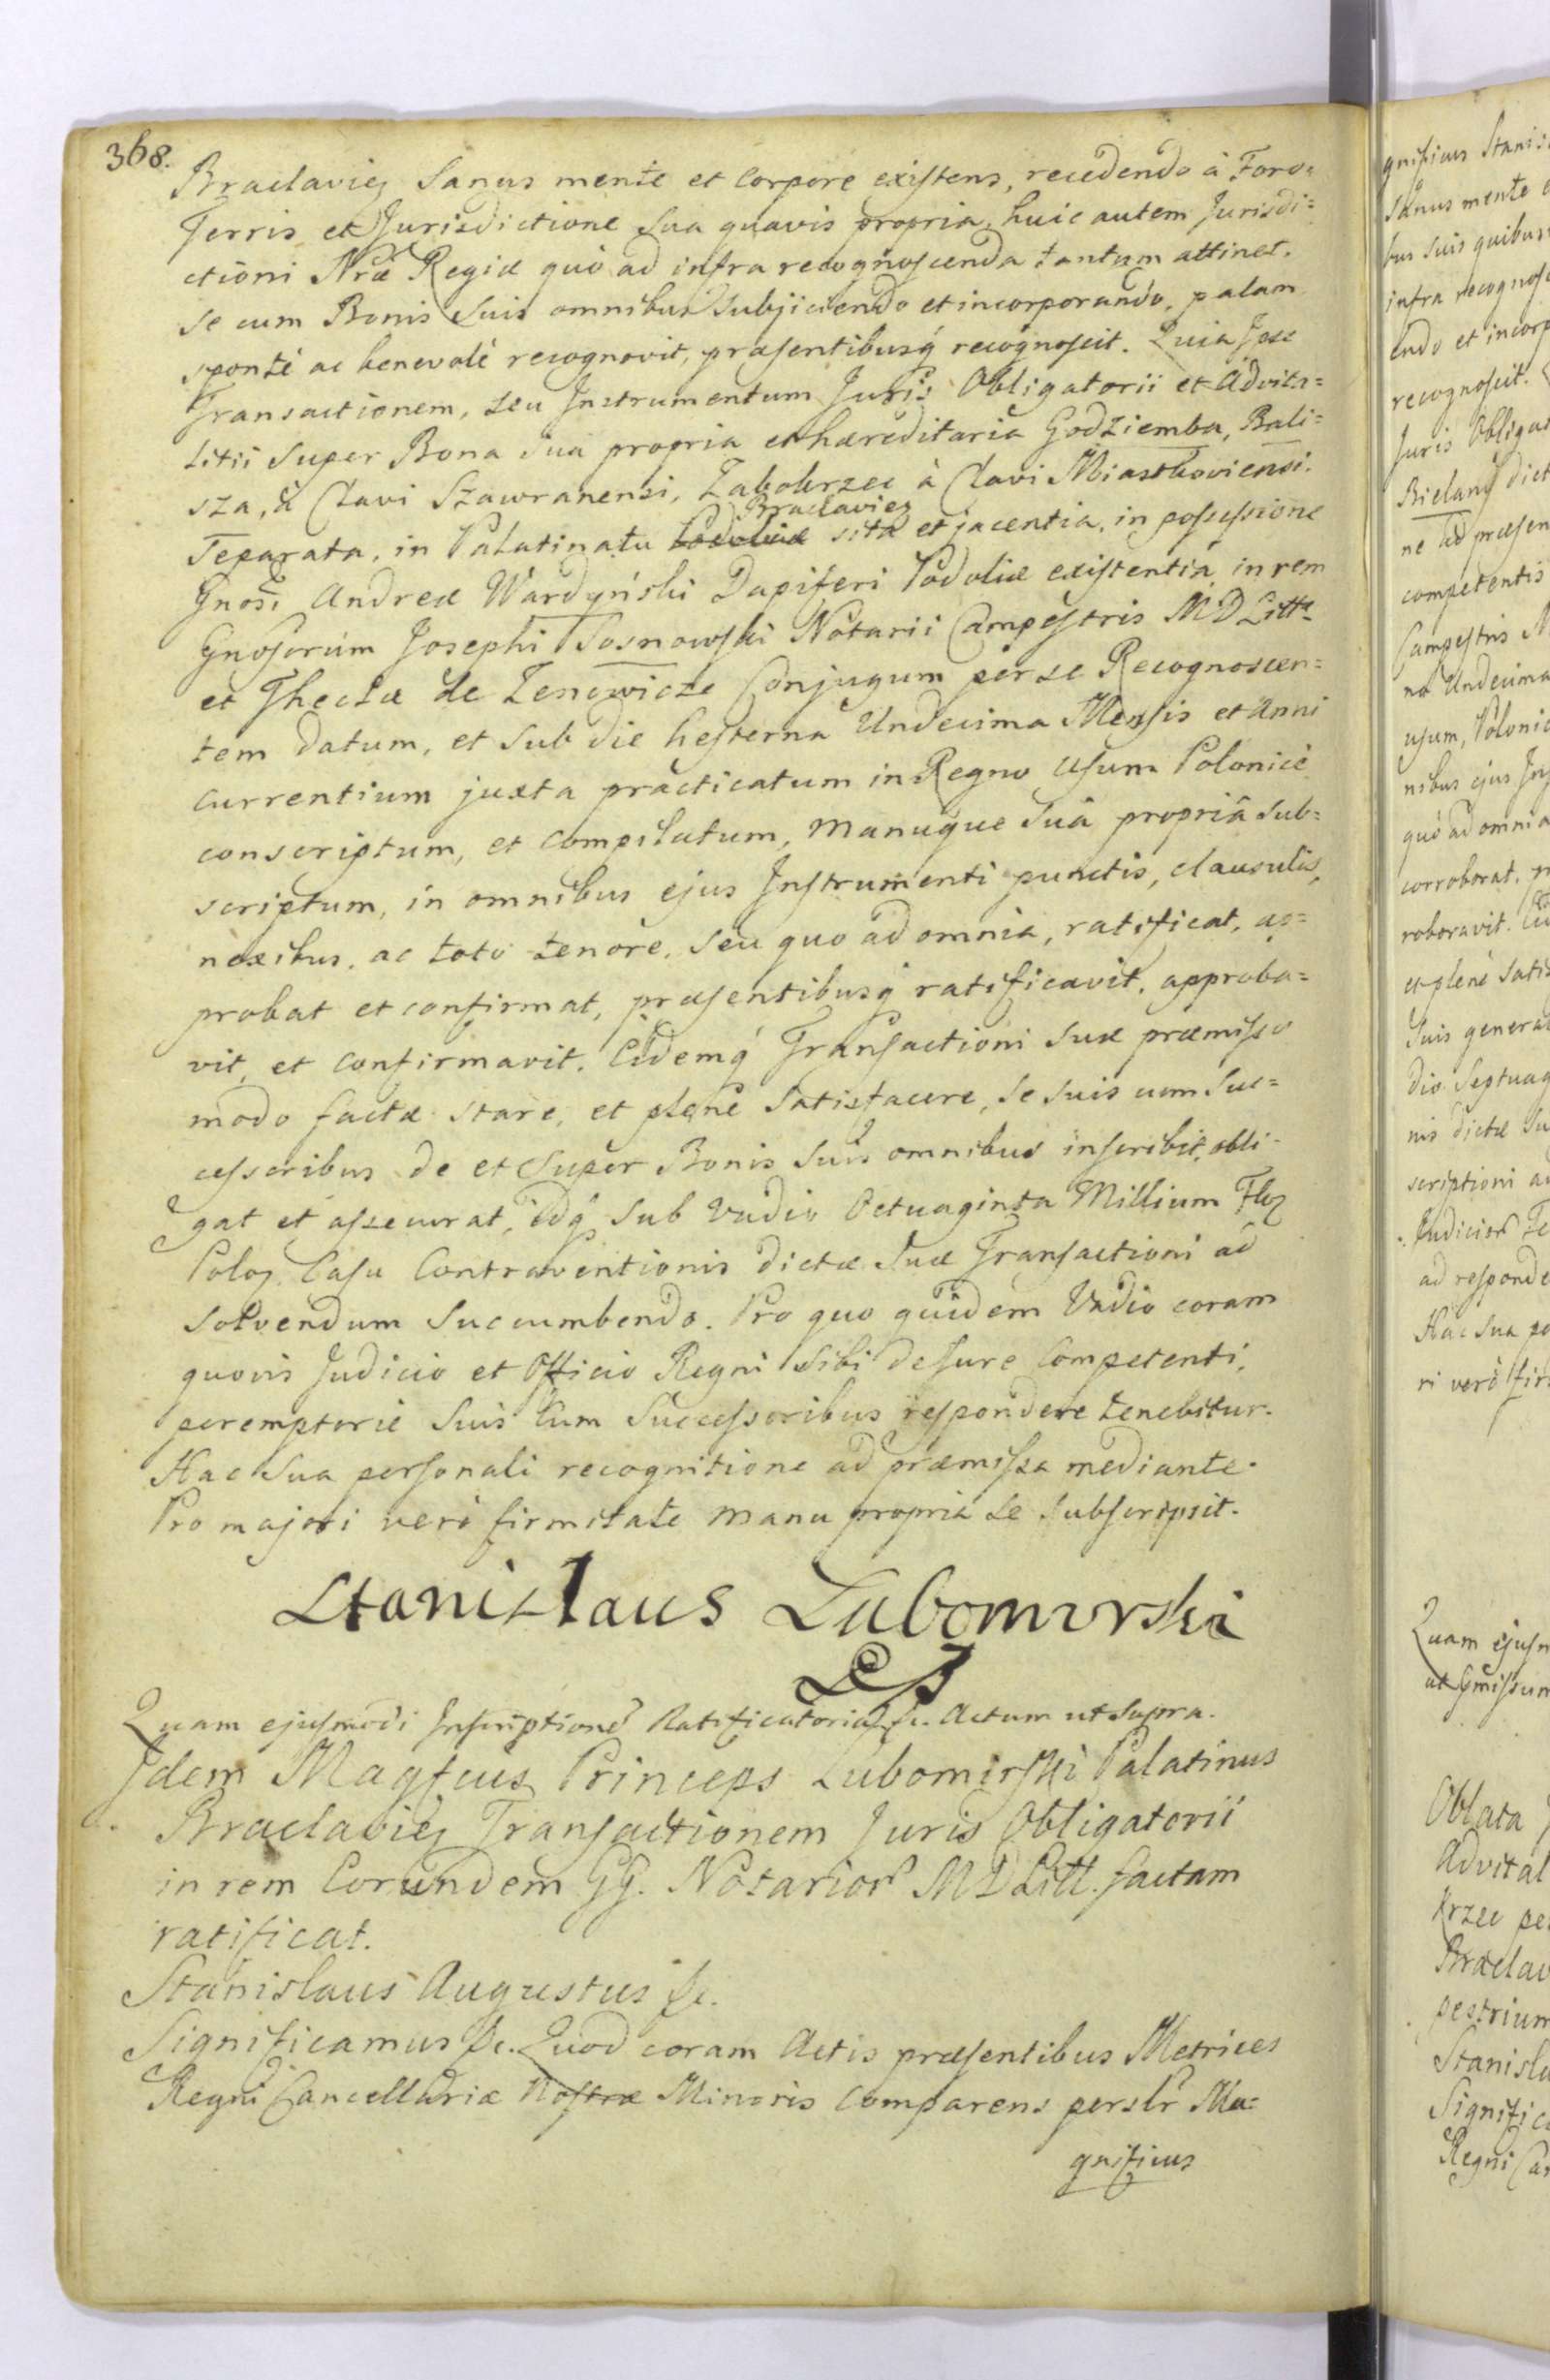 368.
Braclavien Sanus mente et Corpore existens, recedendo à Foro=
Terris et Jurisdictione sua quavis propria, huic autem Jurisdi=
ctioni Nræ Regiæ quò ad infra recognoscenda tantum attinet.
se cum Bonis suis omnibus subjiciendo et incorporando, palam
spontè ac benevolè recognovit, præsentibusq́ recognoscit. Quia Ipse
Transactionem, seu Instrumentum Juris Obligatorii et Advita=
litii super Bona sua propria et hæreditaria Godziemba, Bali=
sza, à Clavi Szawranensi, Zabokrzec à Clavi Miastkoviensi.
Separata, in Palatinatu Podoliæ Braclavien sita et jacentia, in possessione
Gnosi Andreæ Wardyński Dapiferi Podoliæ existentia, in rem
Gnosorum Josephi Sosnowski Notarii Campestris MD Litt.
et Theclæ de Zenowicze Conjugum per se Recognoscen=
tem datum, et sub die hesterna Undecima Mensis et Anni
currentium juxta practicatum in Regno usum Polonicè
conscriptum, et compilatum, manuque suâ propriâ sub=
scriptum, in omnibus ejus Instrumenti punctis, clausulis,
nexibus, ac toto tenore, seu quo ad omnia, ratificat, ap=
probat et confirmat, præsentibusq́ ratificavit, approba=
vit, et confirmavit. Eidemq́ Transactioni suæ præmisso
modo factæ stare, et plenè satisfacere, se suis cum suc=
cessoribus de et super Bonis suis omnibus inscribit, obli=
gat et assecurat, idq́ sub vadio Octuaginta Millium Flor
Polor. Casu Contraventionis dictæ suæ Transactioni ad
solvendum succumbendo. Pro quo quidem Vadio coram
quovis Judicio et Officio Regni sibi de Jure Competenti,
peremptorie suis cum Successoribus respondere tenebitur.
Hac sua personali recognitione ad præmissa mediante.
Pro majori verò firmitate manu propriâ se subscripsit.
Stanislaus Lubomirski
Quam ejusmodi Inscriptione Ratificatoria &c. Actum ut supra.
Idem Magfcus Princeps Lubomirski Palatinus
Braclavien Transactionem Juris Obligatorii
in rem Eorundem GG. Notarior MD Litt. factam
ratificat.
Stanislaus Augustus &c.
Significamus &c. Quod coram Actis præsentibus Metrices
Regni Cancellariæ Nostræ Minoris Comparens persler Ma=
gnificus
gnificus Stanis
Sanus mente
bus suis quibus
infra recognosc
endo et incorp
recognoscit.
Juris Obliga
Bielany dict
ne ad præsen
competentis
Campestris M
na Undecima
usum, Polonic
nibus ejus Ins
quò ad omnia
corroborat, p
roboravit.
et plenè satis
Suis genera
dio Septuag
nis dictæ su
scriptioni ad
Judicior Te
ad responde
Hac sua pe
ri verò fir
Quam ejusm
ut præmissum
Oblata
Advital
krzec pe
Braclav
pestrium
Stanisla
Signific
Regni Ca